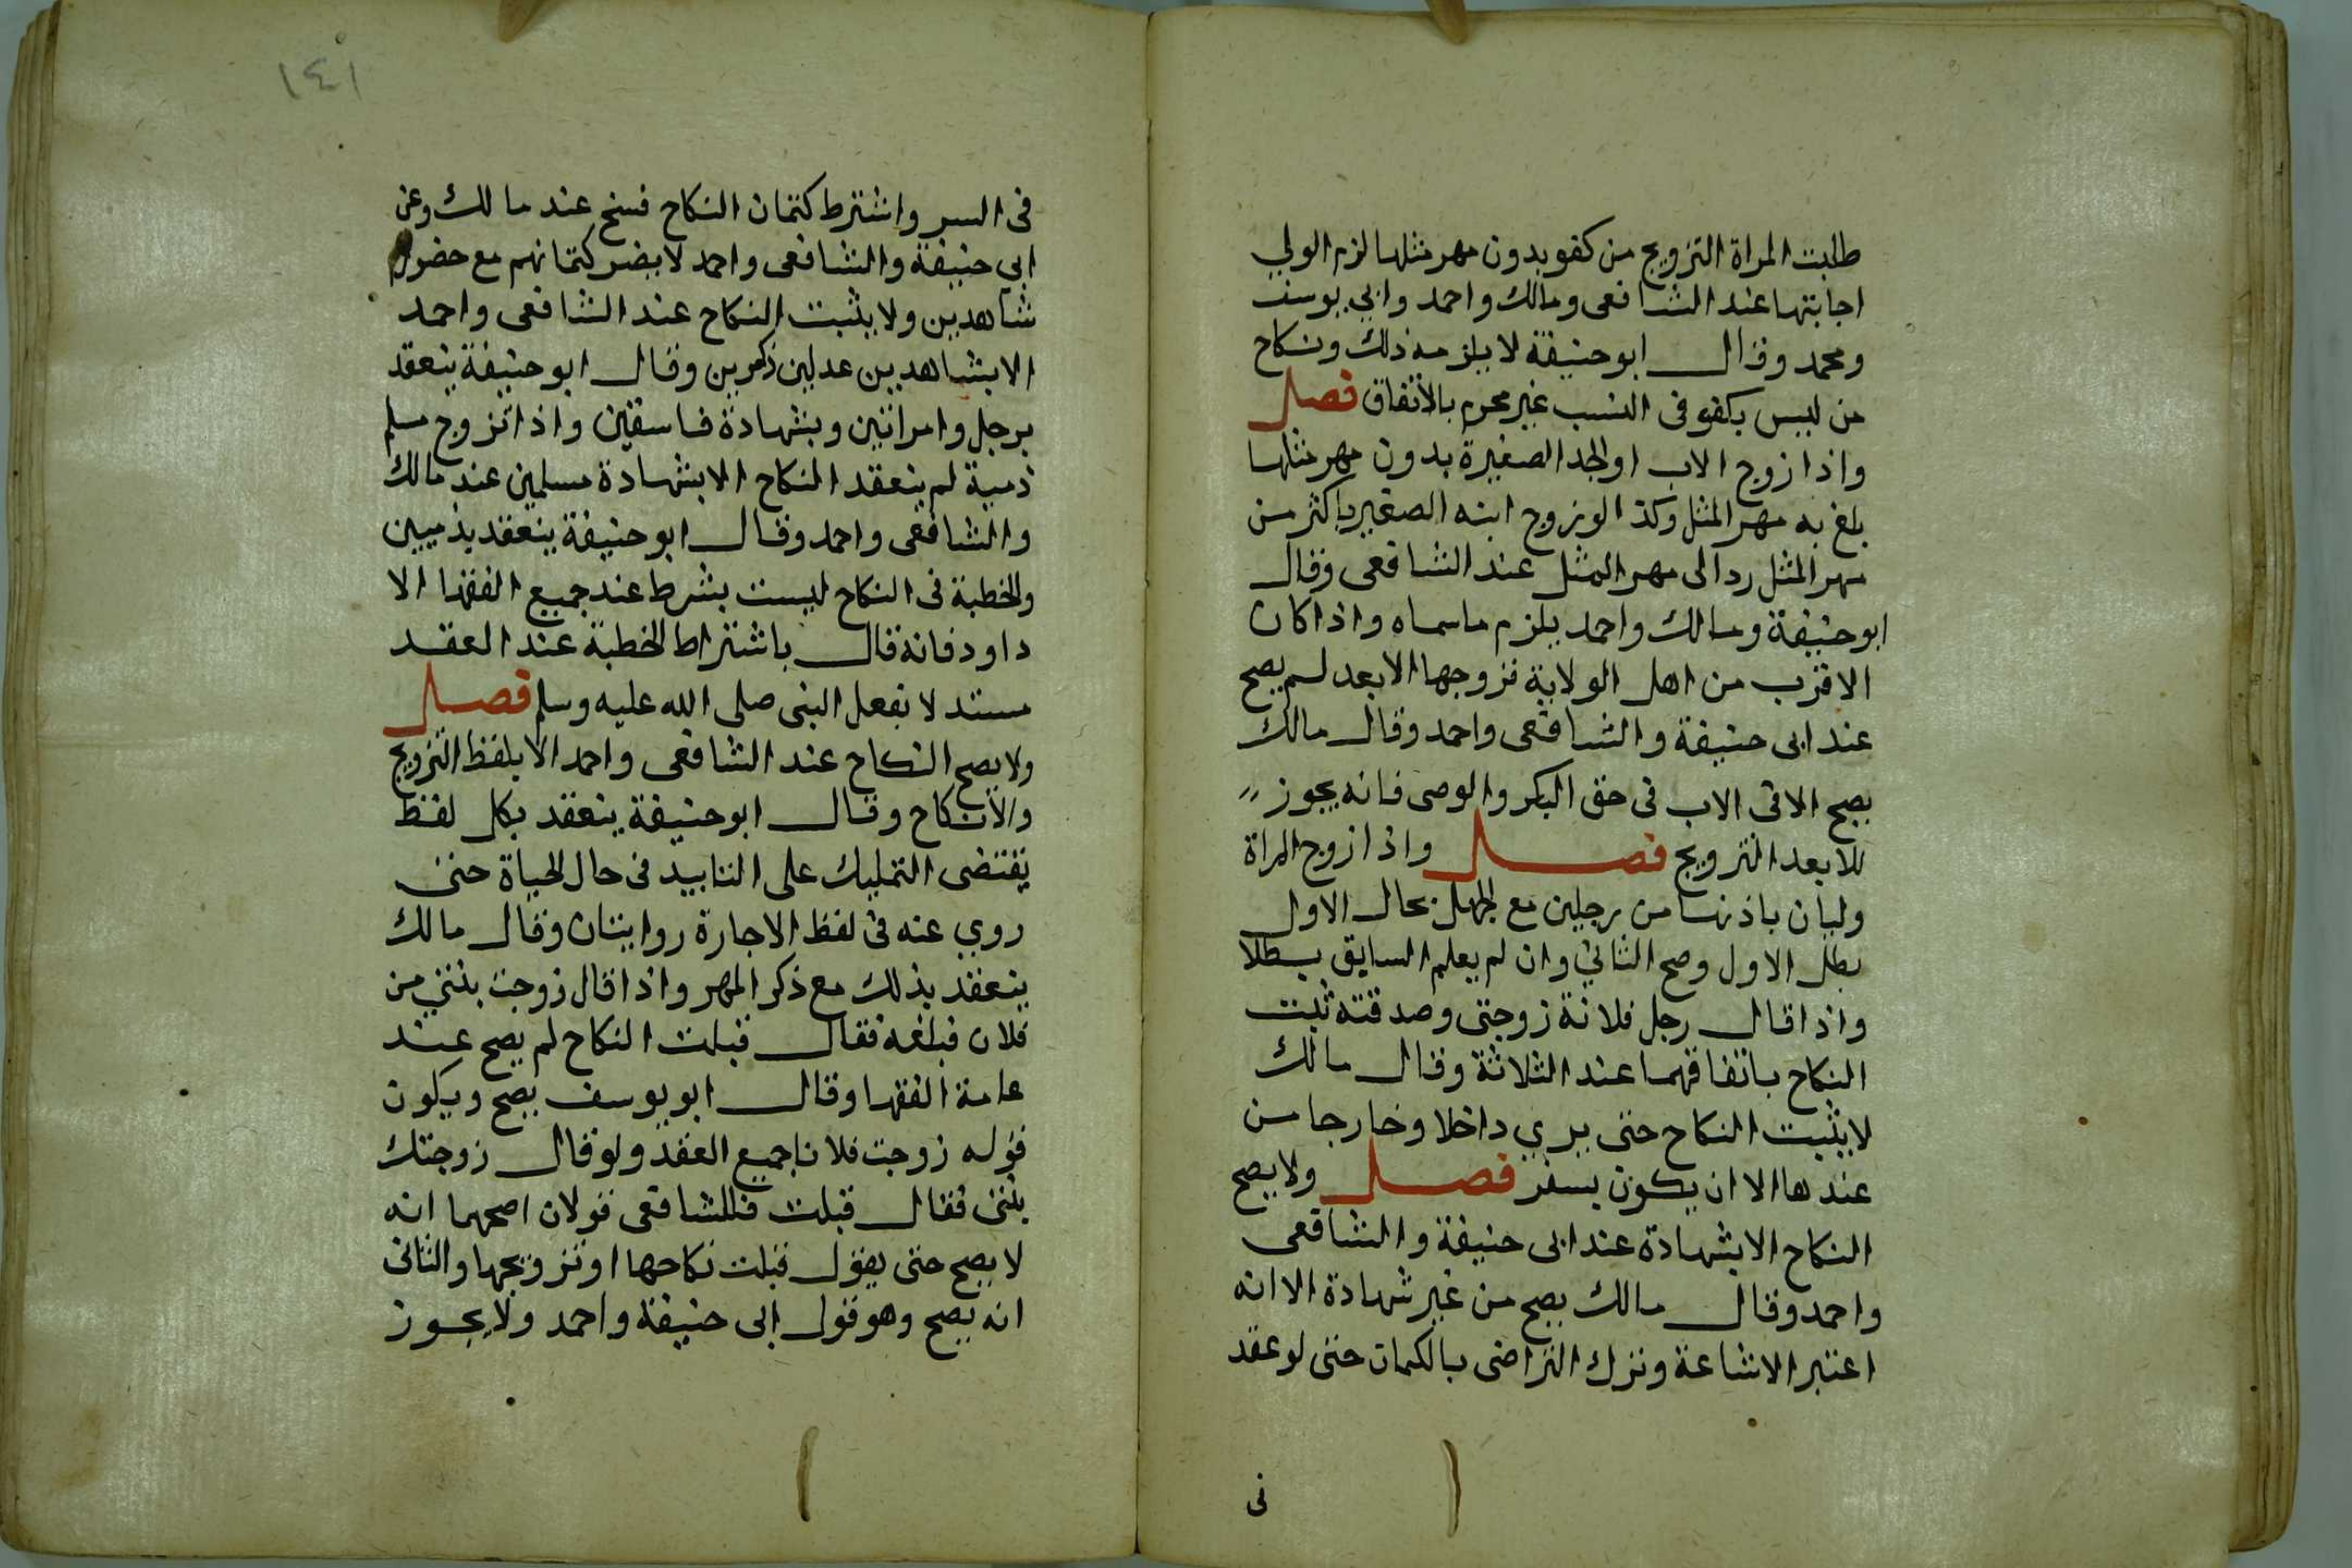 طلبت المراة التزويج من كفو بدون مهر مثلها لزم الولي
اجابتها عند الشافعى ومالك واحمد وابي يوسف
ومحمد وقال ابو حنيفة لا يلزمه ذلك ونكاح
من ليس بكفو فى النسب غير محرم بالاتفاق فصل
واذا زوج الاب او الجد الصغيرة بدون مهر مثلها
بلغ به مهر المثل وكذا لو زوج ابنه الصغير باكثر من
مهر المثل رد الى مهر المثل عند الشافعى وقال
ابو حنيفة ومالك واحمد يلزم ما سماه واذا كان
الاقرب من اهل الولاية فزوجها الابعد لم يصح
عند ابى حنيفة والشافعى واحمد وقال مالك
يصح الا فى الاب فى حق البكر والوصى فانه يجوز
للابعد التزويج فصل واذا زوج المراة
وليان باذنها من رجلين مع الجهل بحال الاول
بطل الاول وصح الثاني وان لم يعلم السابق بطلا
واذا قال رجل فلانة زوجتى وصدقته ثبت
النكاح باتفاقهما عند الثلاثة وقال مالك
لا يثبت النكاح حتى يري داخلا وخارجا من
عندها الا ان يكون بسفر فصل ولا يصح
النكاح الا بشهادة عند ابى حنيفة والشافعى
واحمد وقال مالك يصح من غير شهادة الا انه
اعتبر الاشاعة وترك التراضى بالكتمان حتى لو عقد
فى
١٤١
فى السر واشترط كتمان النكاح فسخ عند مالك وعن
ابي حنيفة والشافعى واحمد لا يضر كتمانهم مع حضور
شاهدين ولا يثبت النكاح عند الشافعى واحمد
الا بشاهدين عدلين ذكرين وقال ابو حنيفة ينعقد
برجل وامراتين وبشهادة فاسقين واذا تزوج مسلم
ذمية لم ينعقد النكاح الا بشهادة مسلمين عند مالك
والشافعى واحمد وقال ابو حنيفة ينعقد بذميين
والخطبة فى النكاح ليست بشرط عند جميع الفقها الا
داود فانه قال باشتراط الخطبة عند العقد
مستدلا بفعل النبى صلى الله عليه وسلم فصل
ولا يصح النكاح عند الشافعى واحمد الا بلفظ التزويج
والانكاح وقال ابو حنيفة ينعقد بكل لفظ
يقتضى التمليك على التابيد فى حال الحياة حتى
روي عنه فى لفظ الاجارة روايتان وقال مالك
ينعقد بذلك مع ذكر المهر واذا قال زوجت بنتي من
فلان فبلغه فقال قبلت النكاح لم يصح عند
عامة الفقها وقال ابو يوسف يصح ويكون
قوله زوجت فلانا جميع العقد ولو قال زوجتك
بنتى فقال قبلت فللشافعى قولان اصحهما انه
لا يصح حتى يقول قبلت نكاحها او تزويجها والثانى
انه يصح وهو قول ابى حنيفة واحمد ولا يجوز